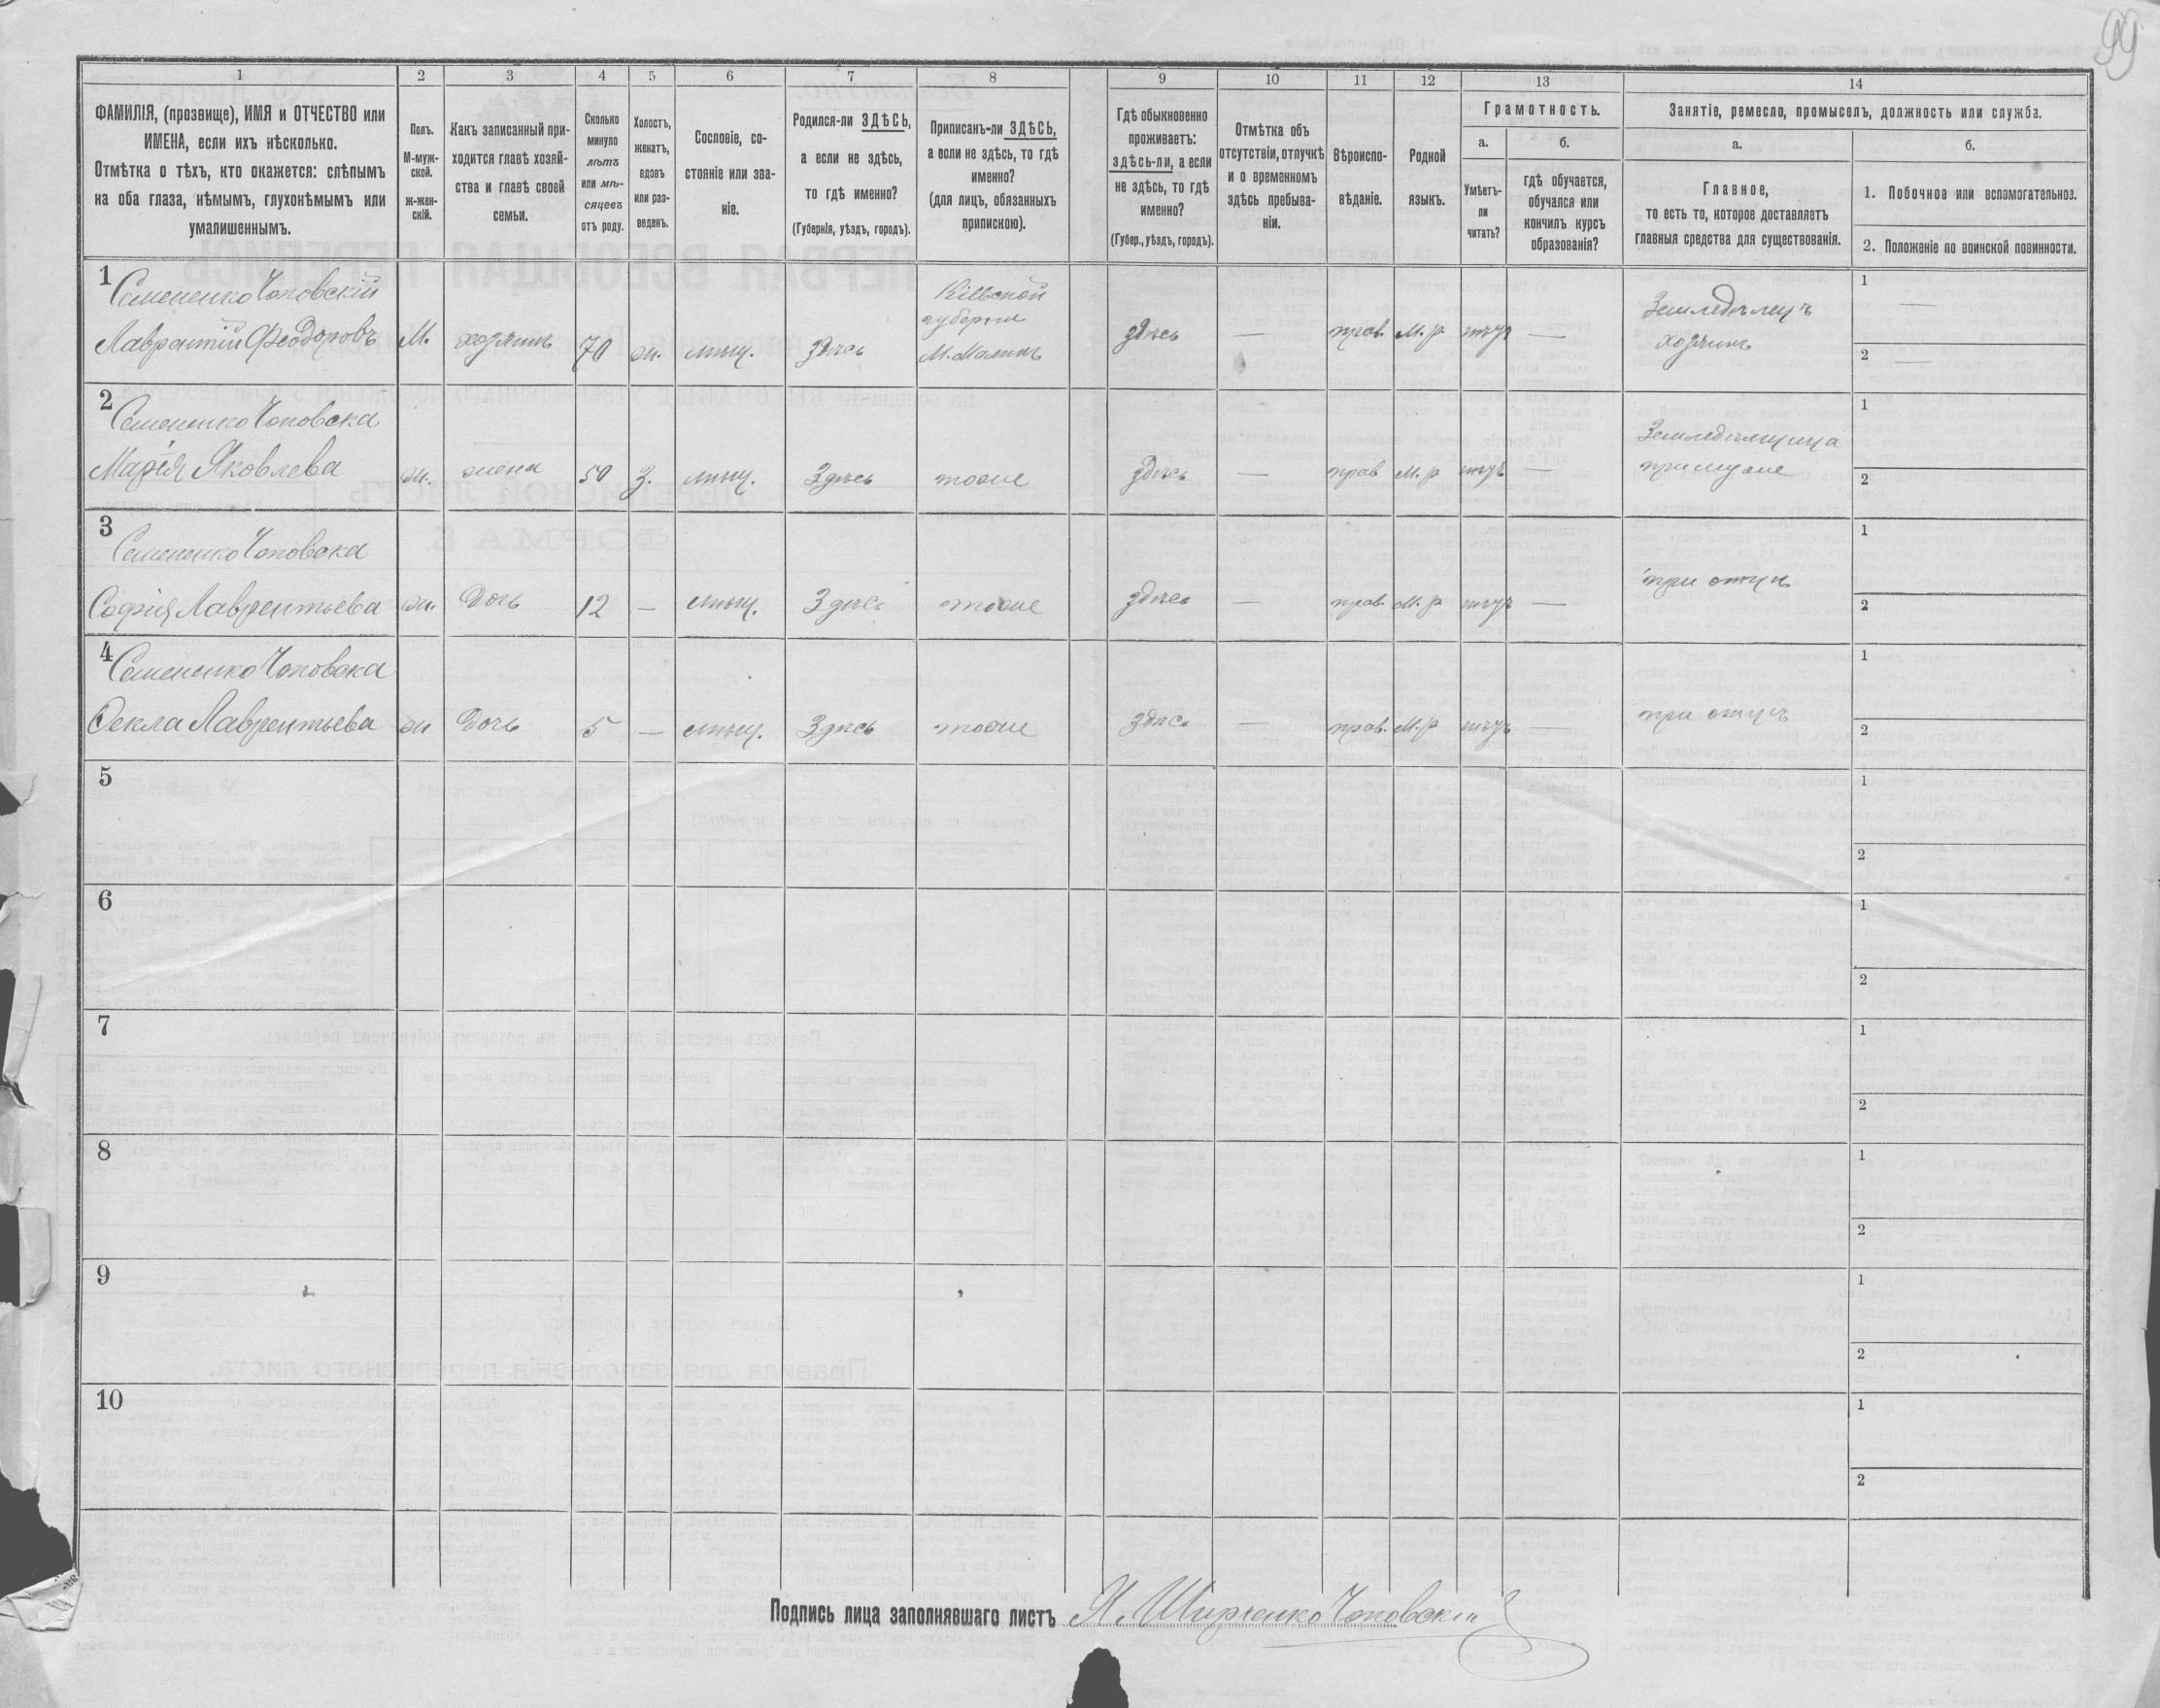 99
1 2 3 4 5 6 7 8 9 10 11 12 13 14
ФАМИЛІЯ, (прозвище), ИМЯ и ОТЧЕСТВО или
ИМЕНА, если ихъ нѣсколько.
Отмѣтка о тѣхъ, кто окажется: слѣпымъ
на оба глаза, нѣмымъ, глухонѣмымъ или
умалишеннымъ.
Полъ.
М-муж-
ской.
ж-жен-
скій.
Какъ записанный при-
ходится главѣ хозяй-
ства и главѣ своей
семьи.
Сколько
минуло
лѣтъ
или мѣ-
сяцевъ
отъ роду.
Холостъ,
женатъ,
вдовъ
или раз-
веденъ.
Сословіе, со-
стояніе или зва-
ніе.
Родился-ли ЗДѢСЬ,
а если не здѣсь,
то гдѣ именно?
(Губернія, уѣздъ, городъ).
Приписанъ-ли ЗДѢСЬ,
а если не здѣсь, то гдѣ
именно?
(для лицъ, обязанныхъ
припискою).
Гдѣ обыкновенно
проживаетъ:
здѣсь-ли, а если
не здѣсь, то гдѣ
именно?
(Губер., уѣздъ, городъ).
Отмѣтка объ
отсутствіи, отлучкѣ
и о временномъ
здѣсь пребыва-
ніи.
Вѣроиспо-
вѣданіе.
Родной
языкъ.
Грамотность.
а.
Умѣетъ-
ли
читать?
б.
гдѣ обучается,
обучался или
кончилъ курсъ
образованія?
Занятіе, ремесло, промыселъ, должность или служба.
а.
Главное,
то есть то, которое доставляетъ
главныя средства для существованія.
б.
1. Побочное или вспомогательное.
2. Положеніе по воинской повинности.
1
Семененко Чоповскій
Лаврентій Феодоровъ М. хозяинъ 70 ж. мѣщ. здѣсь
Кіевской
губерніи
М. Малинъ
здѣсь — прав. М. р. нѣтъ —
Земледѣлецъ
хозяинъ
1 —
2 —
2
Семененко Чоповска
Марія Яковлева ж. жена 50 з. мѣщ. Здѣсь тоже здѣсь — прав М. р нѣтъ —
Земледѣлица
при мужѣ
1
2
3
Семененко Чоповска
Софія Лаврентьева ж. дочь 12 — мѣщ. Здѣсь тоже здѣсь — прав. М. р нѣтъ —
при отцѣ
1
2
4
Семененко Чоповска
Фекла Лаврентьева ж дочь 5 — мѣщ. Здѣсь тоже здѣсь — прав. М. р нѣтъ —
при отцѣ
1
2
5
1
2
6
1
2
7
1
2
8
1
2
9
1
2
10
1
2
Подпись лица заполнявшаго листъ
Чоповскій